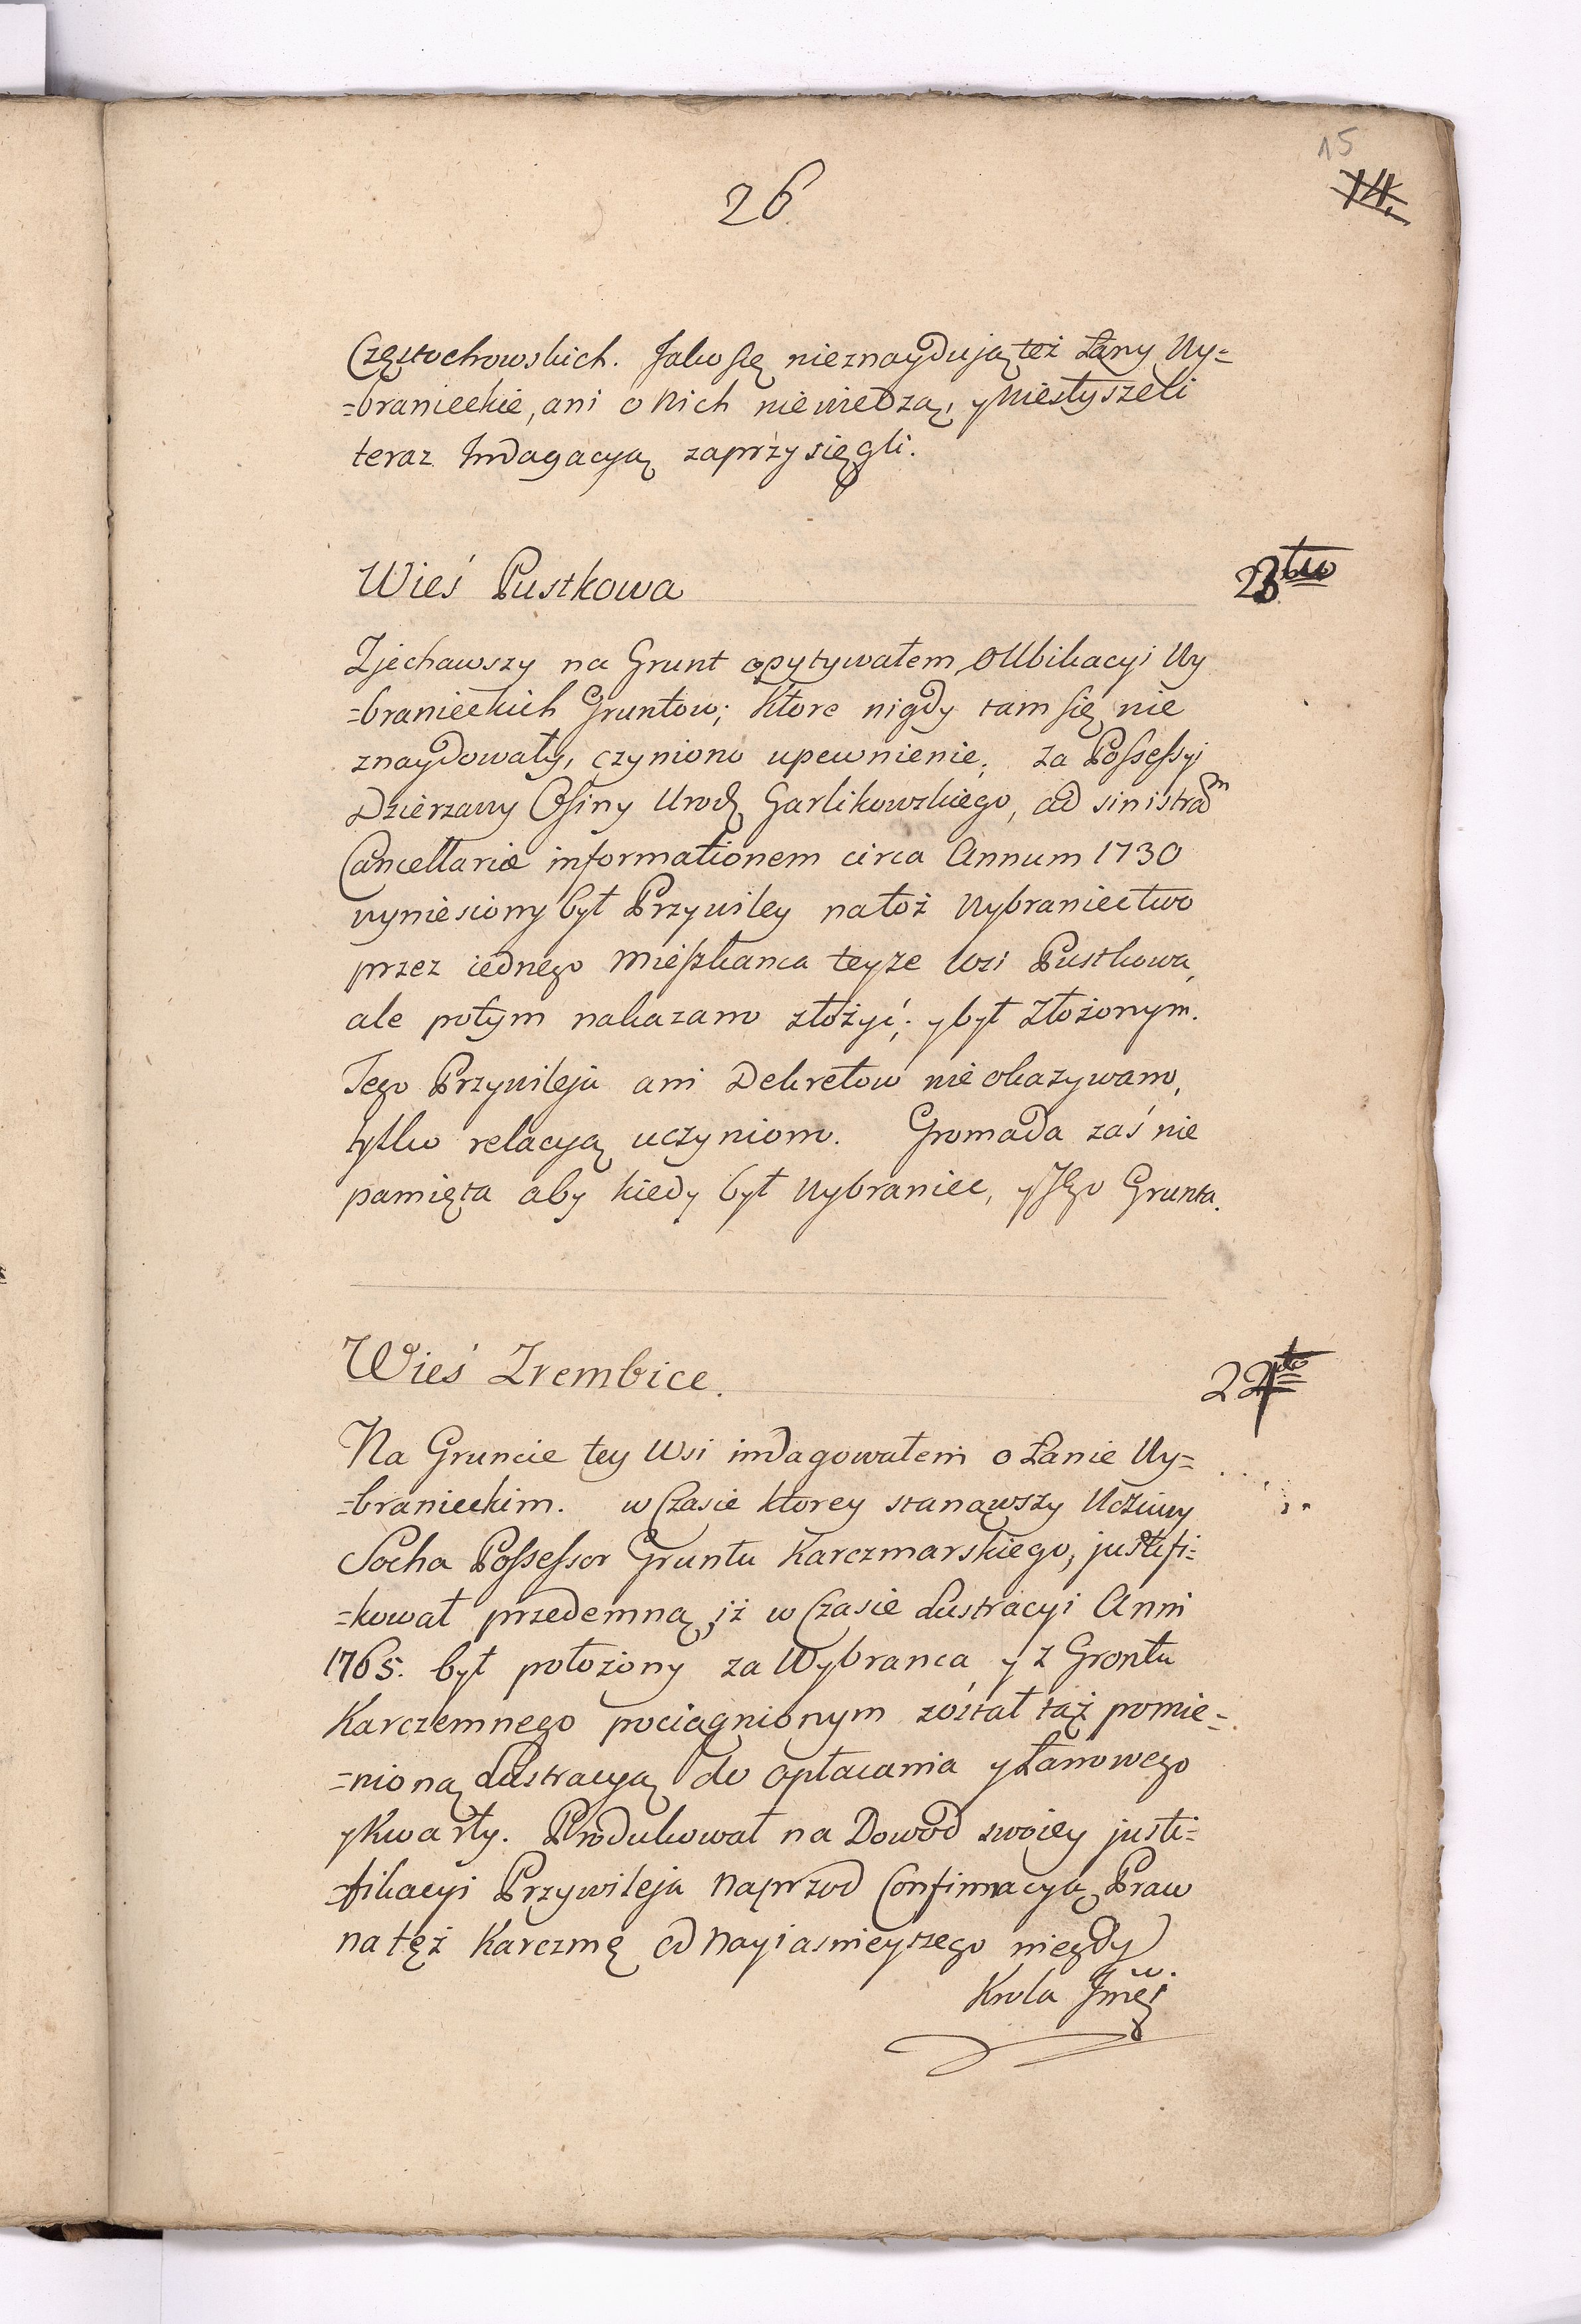 15
14.
26
Częstochowskich. Jako się nieznayduią też Łany Wy=
=branieckie, ani o nich niewiedzą, y niesłyszeli
teraz Indagacyą zaprzysięgli.
Wieś Pustkowa
Zjechawszy na Grunt opytywałem o Ubikacyi Wy
=branieckich Gruntow; ktore nigdy tam się nie
znaydowały, czyniono upewnienie. Za Possessyi
Dzierzawy Osiny Urodz Garlikowskiego, ad sinistram
Cancellariæ informationem circa Annum 1730
wyniesiony był Przywiley na toż Wybraniectwo
przez iednego mieszkanca teyze Wsi Pustkowa,
ale potym nakazano złożyć; y był złożonym.
Tego Przywileju ani Dekretow nie okazywano,
tylko relacyą uczyniono. Gromada zaś nie
pamięta aby kiedy był Wybraniec, y Jego Grunta.
Wieś Zrembice.
Na Gruncie tey Wsi indagowałem o Łanie Wy=
=branieckim. w Czasie ktorey stanąwszy Uczciwy
Socha Possessor Gruntu Karczmarskiego, justifi=
=kował przedemną, iż w Czasie Lustracyi Anni
1765. był położony za Wybranca y z Grontu
Karczemnego pociągnionym został taż pomie=
=nioną Lustracyą do opłacania y Łanowego
y Kwarty. Produkował na Dowod swoiey justi=
=fikacyi Przywileja naprzod Confirmacyą Praw
na tęż Karczmę od Nayiasnieyszego niegdy
Krola Jmći